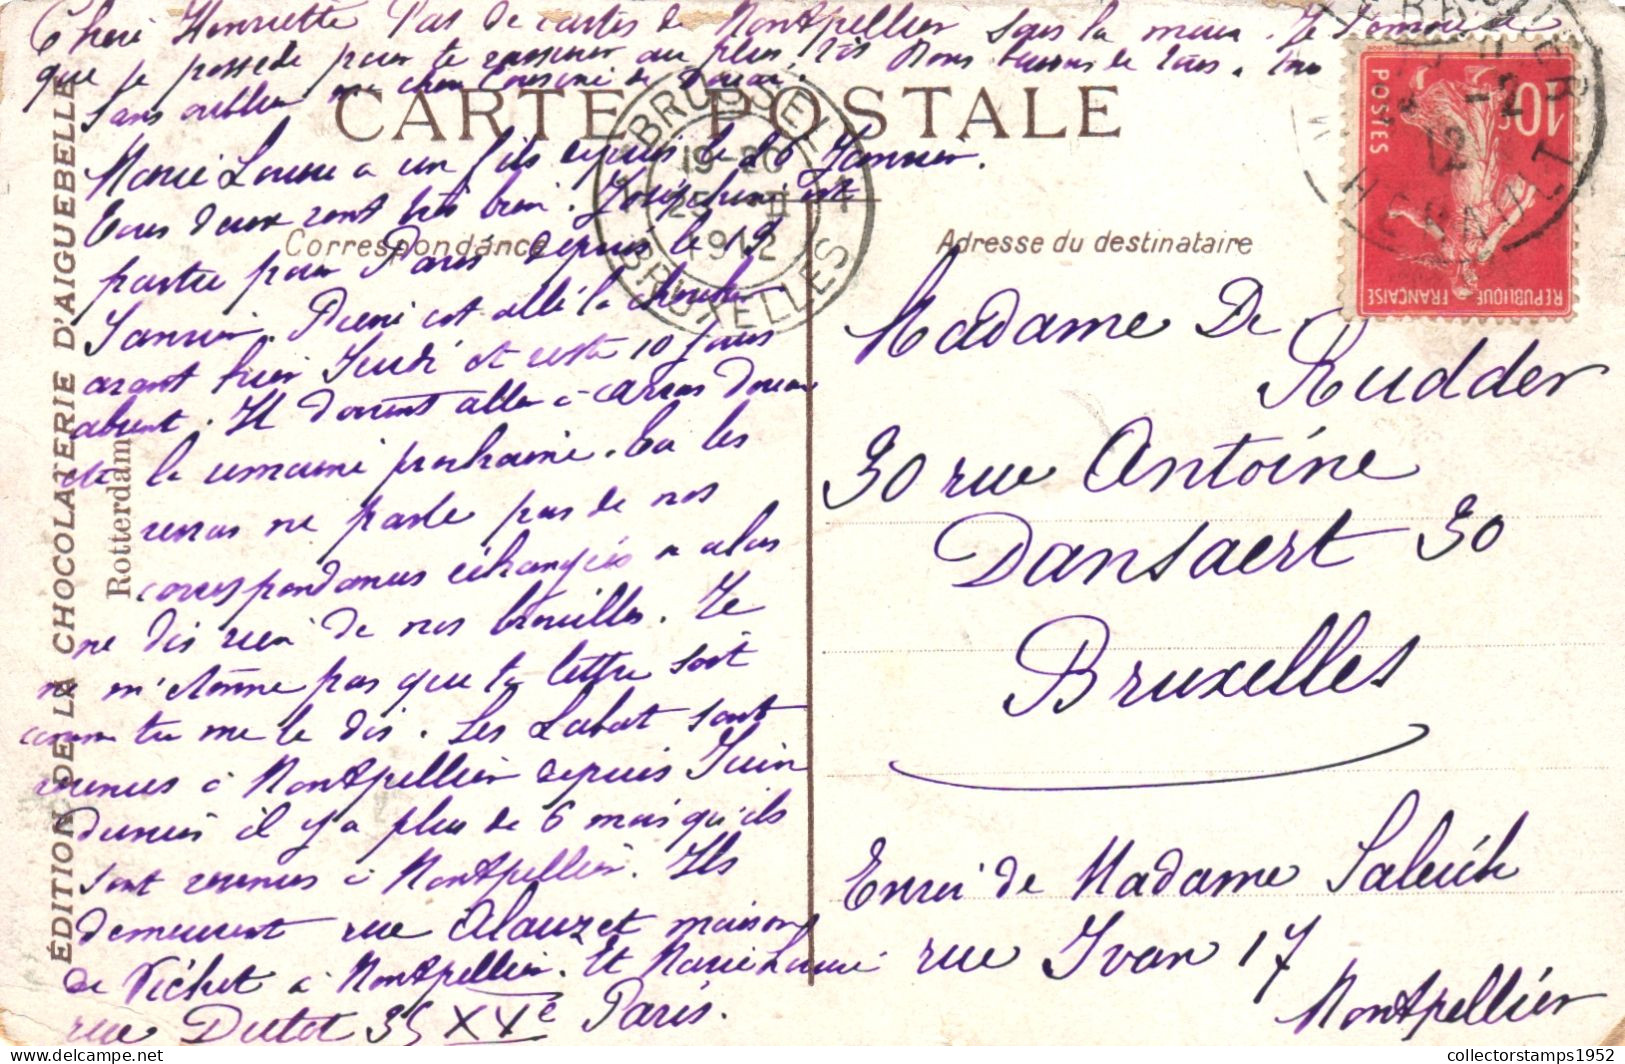 Chère Henriette Pas de cartes de Montpellier sous la main. Je t'envoie ce
que je possède pour te rassurer au plus tôt Bons baisers de tous.
sans oublier ma chère Cousine de Douai.
CARTE POSTALE
Marie Louise a un fils depuis le 26 Janvier.
Tous deux vont très bien. Joséphine est
Correspondance
partie pour Paris depuis le 19
Janvier. Pierre est allé la chercher
avant hier Jeudi et reste 10 jours
absent. Il doivent aller à Arras Douai
la semaine prochaine. Tu les
verras ne parle pas de nos
correspondances échangées
ne dis rien de nos brouilles. Je
ne m'étonne pas que ta lettre soit
comme tu me le dis. Les Labat sont
revenus à Montpellier depuis Juin
dernier il y a plus de 6 mois qu'ils
sont revenus à Montpellier. Ils
demeurent rue Alauzet maison
de Vichet à Montpellier. Et Marie Louise
rue Dutot 35 XVe Paris.
ÉDITION DE LA CHOCOLATERIE D'AIGUEBELLE
Rotterdam
BRUSSEL 1
19-20
25 II
1912
BRUXELLES
10c
POSTES
REPUBLIQUE FRANÇAISE
HERAULT
Adresse du destinataire
Madame De
Rudder
30 rue Antoine
Dansaert 30
Bruxelles
Envoi de Madame
rue Yvan 17
Montpellier
collectorstamps1952